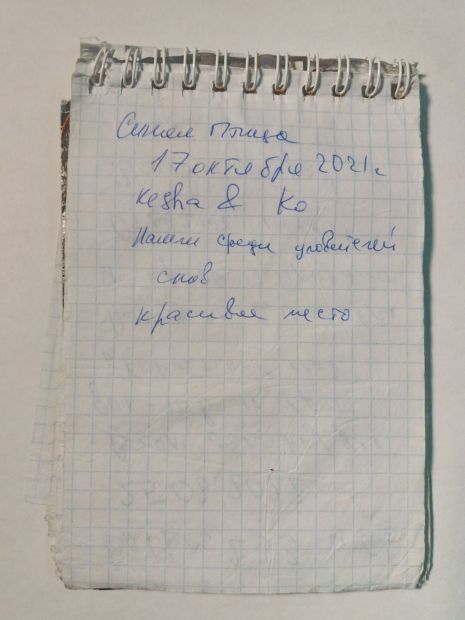 Синяя Птица
17 октября 2021г
Kesha & Ko
Нашли среди уловителей
снов
красивое место